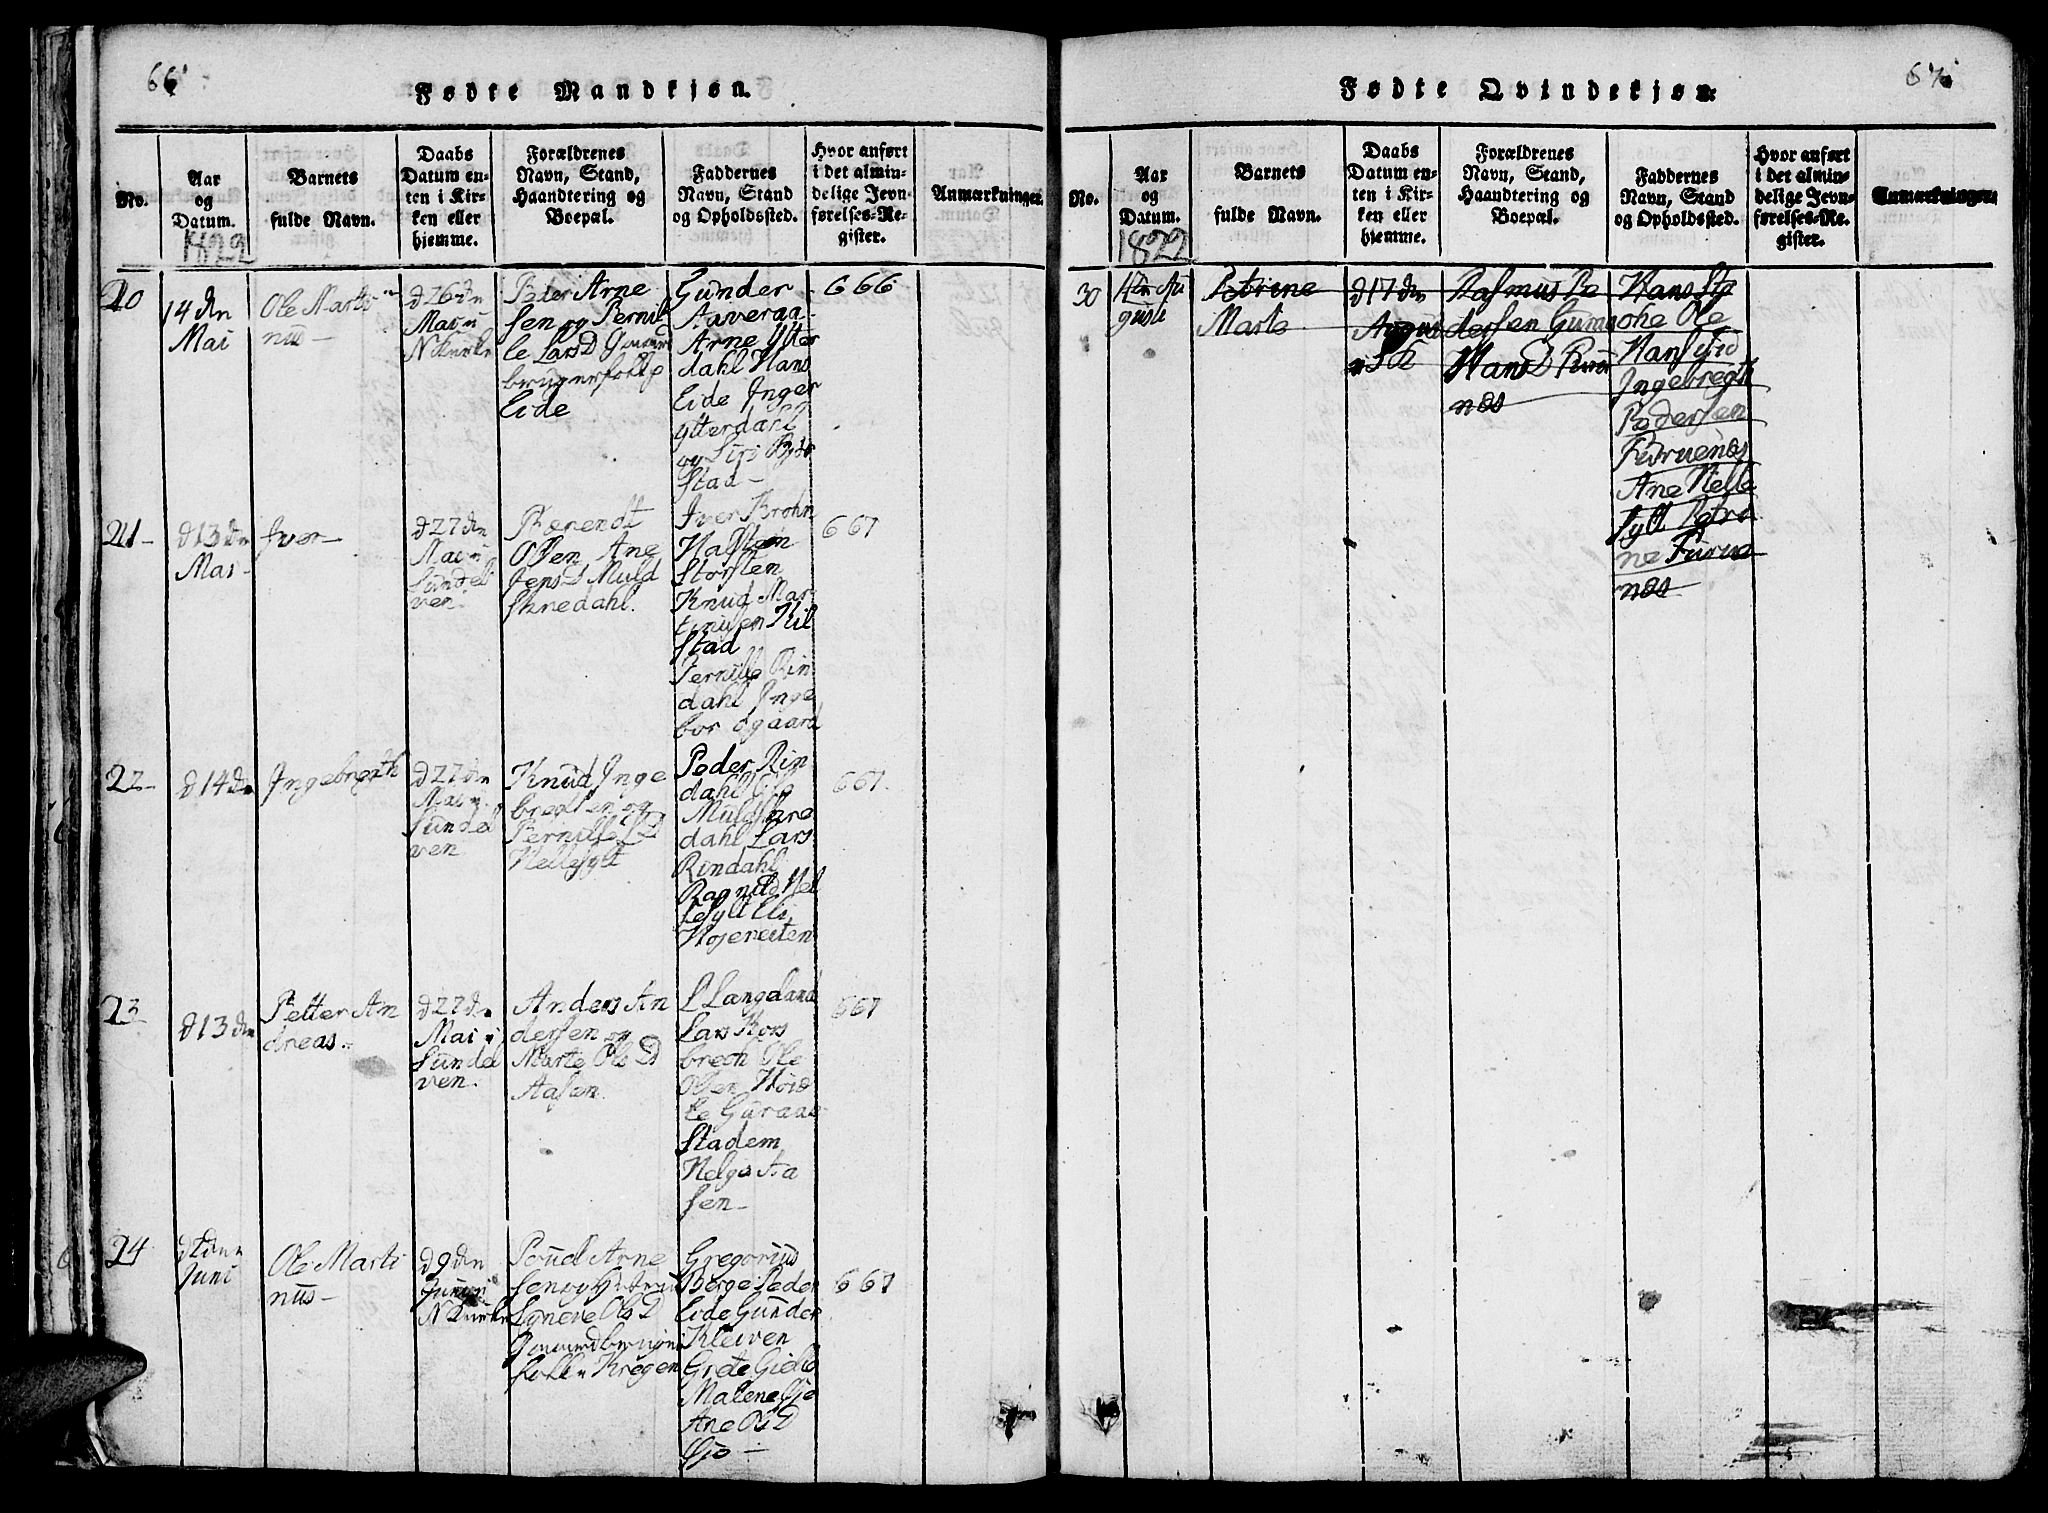 66
Fødte Mandkjøn.
No.
Aar
og
Datum.
1822
Barnets
fulde Navn.
Daabs
Datum en-
ten i Kir-
ken eller
hjemme.
Forældrenes
Navn, Stand,
Haandtering og
Boepæl.
Faddernes
Navn, Stand
og Opholdssted.
Hvor anført
i det almin-
delige Jevn-
førelses-Re-
gister.
Anmærkninger.
20
14 dn
Mai
Ole Marti
nus
d 26 dn
Mai i
N Kirke
Peder Arne
sen og Pernil
le Lars D
brugerfolk
Eide
Gunder
Aaveraa
Arne Ytter
dahl Hans
Eide Inger
Ytterdahl
og Siri
Stad
666
21
d 13 dn
Mai
Iver
d 27 dn
Mai i
Sundel
ven.
Berendt
Olsen Ane
Jens D Muld
skredahl.
Iver Brohn
Halsten
Storsten
Knud Mar
tinusen Hil
Stad
Pernille Rin
dahl Inge
bor ogaard
667
22
d 14 dn
Ingebregth
d 27 dn
Mai i
Sundel
ven
Knud Inge
bregtsen og
Pernille L D
Hellesylt
Peder Rin
dahl Ole
Muldskre
dahl Lars
Rindahl
Ragnild Hel
lesylt Eli
Hojereiten
667.
23
d 13 dn
Petter An
dreas
d 27 dn
Mai i
Sundel
ven.
Anders An
dersen og
Marte Ols D
Aasen.
L Langeland
Lars Kors
brech Ole
Olsen
Stadem
Helge Aa
sen
667
24
Juni
Ole Marti
nus
d 9 dn
Juni i
N Kirke
Poud Arne
sen og Hustru
Synneve Ols D
Gaardbruger
folk Krogen
Gregorius
Berge Peder
Eide Gunder
Kleiven
Grete Gielle
Malene Gjo
Ane Ols D
Gjo
667
67
Fødte Qvindekjøn.
No.
Aar
og
Datum.
1822
Barnets
fulde Navn.
Daabs
Datum en-
ten i Kir-
ken eller
hjemme.
Forældrenes
Navn, Stand,
Haandtering og
Boepæl.
Faddernes
Navn, Stand
og Opholdssted.
Hvor anført
i det almin-
delige Jevn-
førelses-Re-
gister.
Anmærkninger.
30
4 dn Au
gust
Petrine
Marte
d 17 dn
August
i S K
Rasmus Pe
dersen Guni
Hans D Furu
næs
Hans
Ole
Hans
Ingebregth
Pedersen
Furuenæs
Ane Helle
sylt Petri
ne Furue
næs